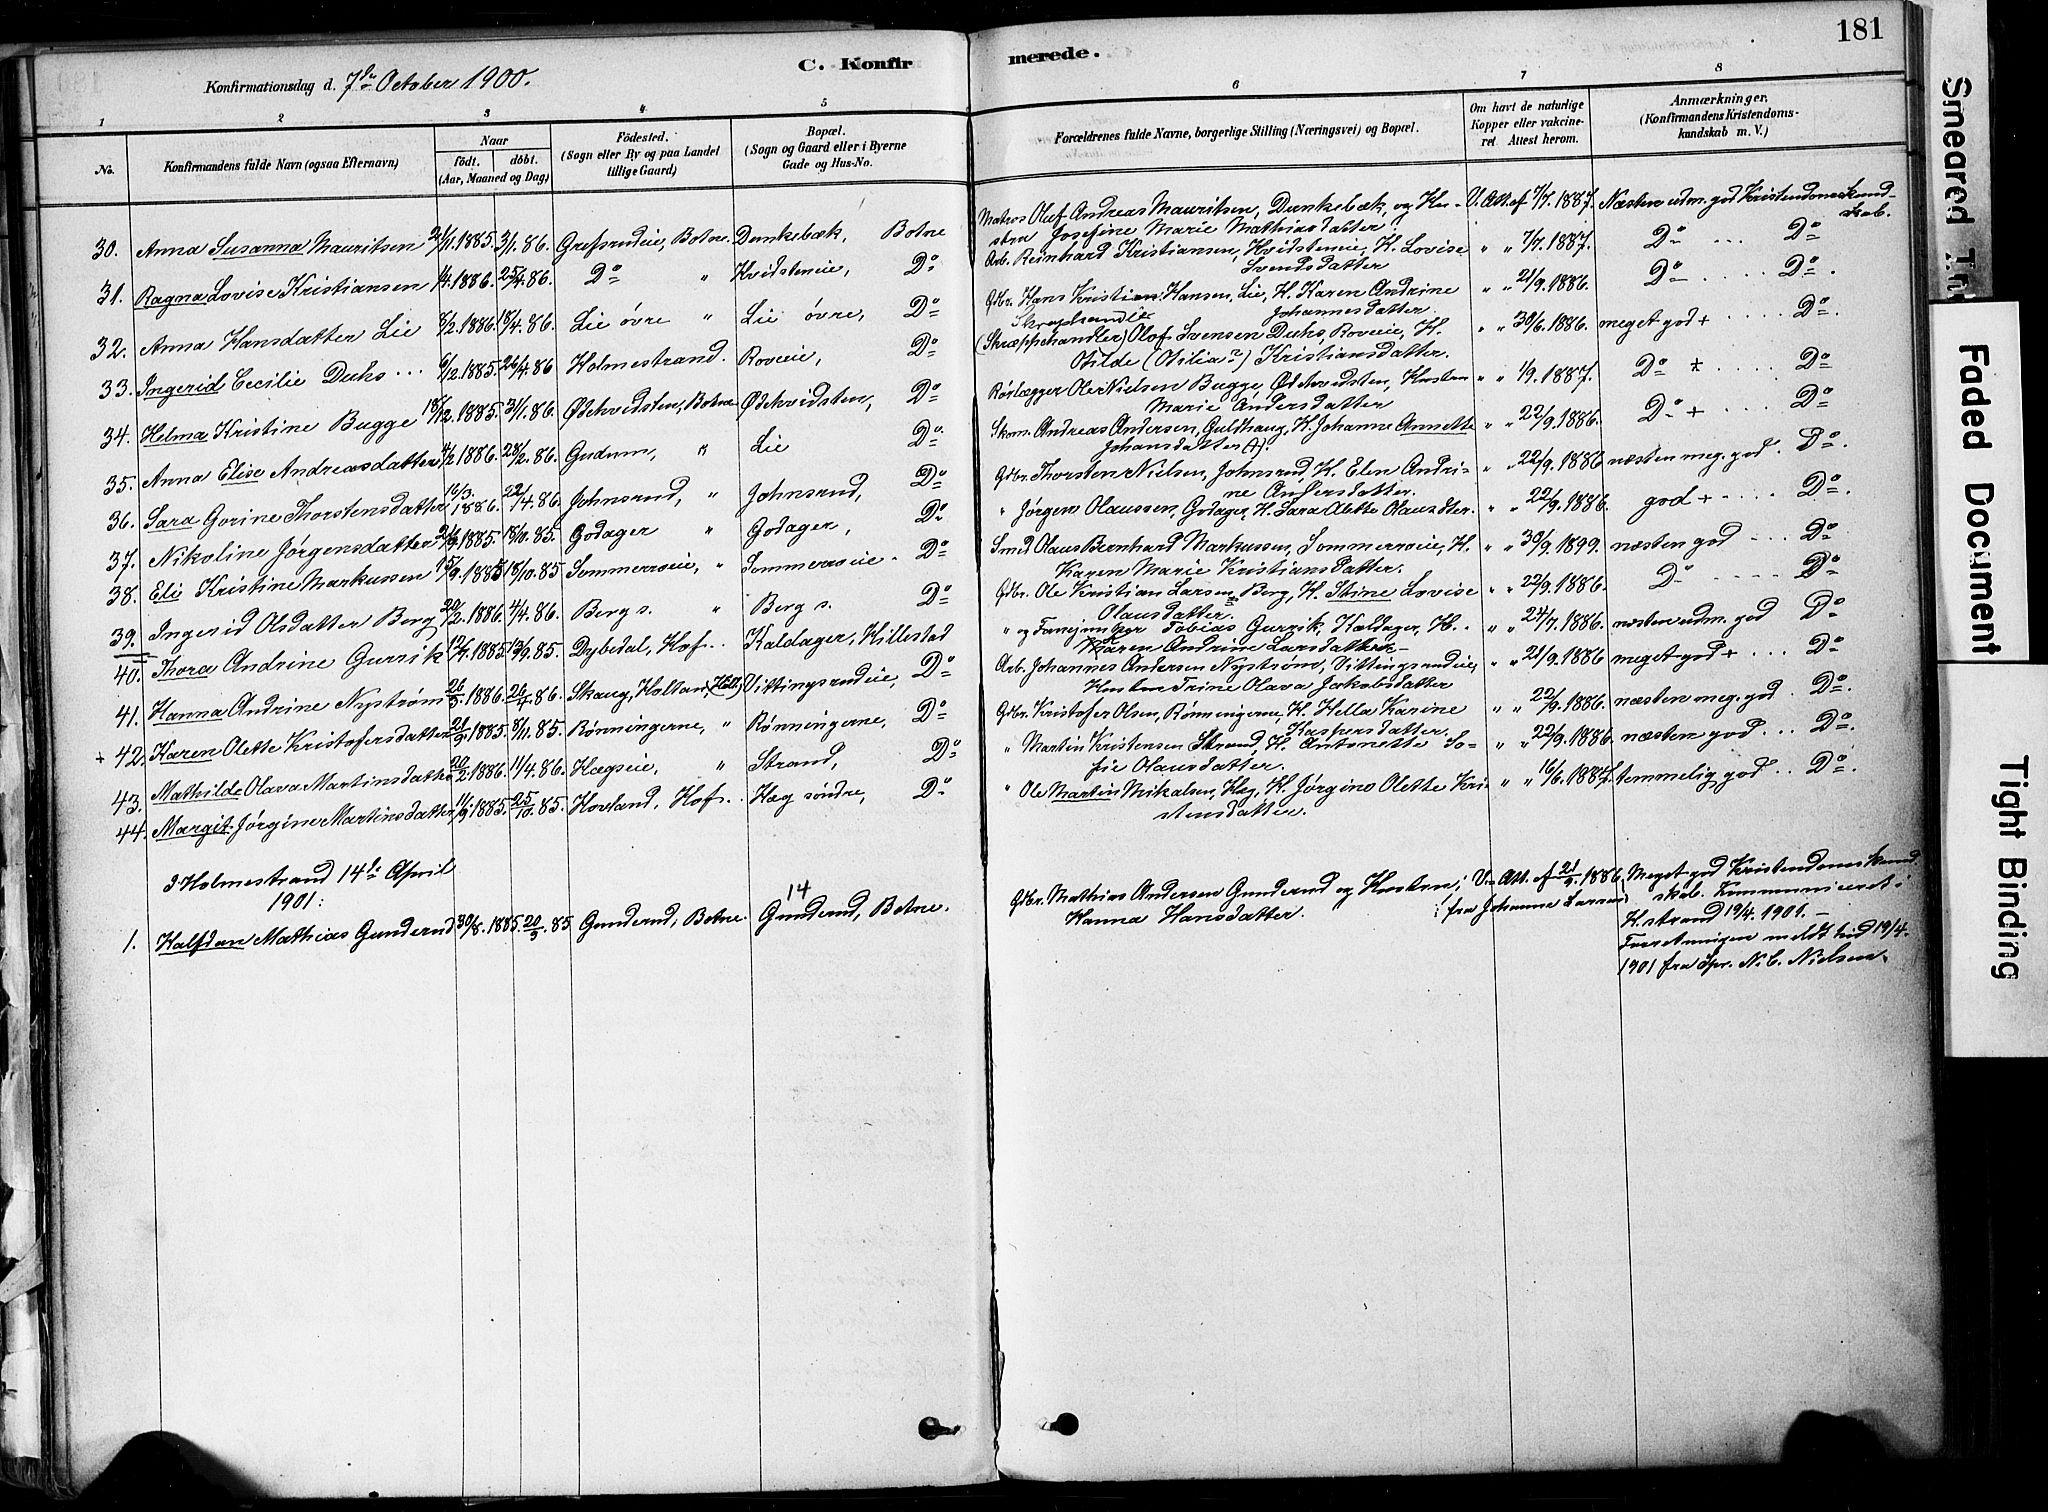 181
C. Konfir
merede.
Konfirmationsdag d. 7de October 1900.
1 2 3 4 5 6 7 8
No.
Konfirmandens fulde Navn (ogsaa Efternavn)
Naar
födt. döbt.
(Aar, Maaned og Dag)
Födested.
(Sogn eller By og paa Landet
tillige Gaard)
Bopæl.
(Sogn og Gaard eller i Byerne
Gade og Hus-No.
Forældrenes fulde Navne, borgerlige Stilling (Næringsvei) og Bopæl.
Om havt de naturlige
Kopper eller vakcine-
ret Attest herom.
Anmærkninger.
(Konfirmandens Kristendoms-
kundskab m. V.)
30. Anna Susanna Mauritsen 2/11.1885. 3/1.86. Grefsrudeie, Botne Dunkebæk, Botne Matros Oluf Andreas Mauritsen, Dunkebæk, og Hu- V. Att. af 7/7.1887. Næsten udm. god Kristendomskund-
stru Josefine Marie Mathiasdatter skab.
31. Ragna Lovise Kristiansen 1/4.1886. 25/4.86. Do " Hvidsteneie, Do Arb. Reinhard Kristiansen, Hvidsteneie, H. Lovise " " 7/7.1887. Do ... Do
Svendsdatter
32. Anna Hansdatter Lie 8/2.1886. 18/4.86. Lie övre " Lie övre, Do Gbr. Hans Kristian Hansen, Lie, H. Karen Andrine " " 21/9.1886. Do .... Do.
Johannesdatter
33. Ingerid Cecilie Duhs ... 6/12.1885. 26/4.86 Holmestrand. Roveie, Do (Skræppehandler) Olof Svensen Duhs, Roveie, H. " " 30/6.1886. meget god + ... Do.
Otilde (Otilia?) Kristiansdatter.
34. Helma Kristine Bugge 18/12.1885. 31/1.86. Ödehvidsten, Botne Ödehvidsten, Do Rörlægger Ole Nielsen Bugge, Ödehvidsten, Hustru " " 1/9.1887. Do + .... Do
Marie Andersdatter
35. Anna Elise Andreasdatter 4/2.1886. 28/2.86. Gudum, " Lie Do Skom. Andreas Andersen, Guldhaug, H. Johanne Annette " " 22/9.1886. Do + .... Do
Johansdatter (†).
36. Sara Gorine Thorstensdatter 16/3.1886. 22/4.86. Johnsrud, " Johnsrud, Do Gbr. Thorsten Nielsen, Johnsrud, H. Elen Andri- " " 22/9.1886 næsten meg. god. Do.
ne Andersdatter.
37. Nikoline Jörgensdatter 21/9.1885. 18/10.85. Godager " Godager, Do " Jörgen Olaussen, Godager, H. Sara Olette Olausdter. " " 22/9.1886. god + .... Do.
38. Elie Kristine Markussen 15/9.1885 18/10.85 Sommerroeie, " Sommerroeie. Do Smed Olaus Bernhard Markussen, Sommerroeie, H. " " 30/9.1899. næsten god ... Do
Karen Marie Kristiansdatter.
39. Ingerid Olsdatter Berg 20/2.1886. 4/4.86. Berg s. " Berg s. Do Gbr. Ole Kristian Larsen Berg, H. Stine Lovise " " 22/9.1886. Do .... Do
Olausdatter.
40. Thora Andrine Gursik 12/7.1885. 13/9.85. Dybedal, Hof.. Kaldager, Hillestad " og Fanejunker Tobias Gursik, Kaldager, H. " " 24/7.1886. næsten udm. god Do
Karen Andrine Larsdatter.
41. Hanna Andrine Nyström 26/3.1886. 26/4.86. Skaug, Holtan, (Hill.) Vittingsrudeie, Do Arb. Johannes Andersen Nyström, Vittingsrudeie, " " 21/9.1886 meget god + ... Do
Hustru Trine Olava Jakobsdatter
+ 42. Karen Olette Kristofersdatter 21/9.1885. 8/11.85. Rönningerne, " Rönningerne, Do Gbr. Kristofer Olsen, Rönningerne, H. Hella Karine " " 22/9.1886. næsten meg. god. Do.
Kaspersdatter.
43. Mathilde Olava Martinsdatter 20/2.1886. 11/4.86. Hægseie, " Strand, Do " Martin Kristensen Strand, H. Antonette So- " " 22/9.1886. næsten god ... Do.
fie Olausdatter.
44. Margit Jörgine Martinsdatter 11/9.1885. 25/10.85. Hovland, Hof.. Hæg söndre, Do " Ole Martin Mikalsen, Hæg, H. Jörgine Olette Kri- " " 16/6.1887. temmelig god .. Do.
stensdatter.
I Holmestrand 14de April
1901:
14
1. Halfdan Mathias Gunderud 30/8.1885. 20/9.85 Gunderud, Botne. Gunderud, Botne. Gbr. Mathias Andersen Gunderud og Hustru, V. Att. af 21/9.1886, Meget god Kristendomskund-
Hanna Hansdatter. fra Johanne Larsen skab. Kommuniceret i
H.strand 19/4.1901.
Forretningen meldt hid 19/4.
1901 fra Spr. N. C. Nielsen.
Smeared
Faded Document
Tight Binding